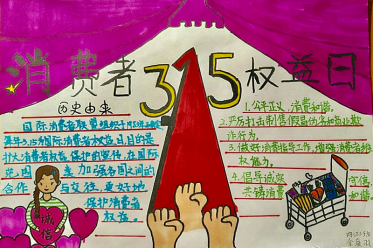 消费者315权益日
历史由来
国际消费者联盟组织于1983年确
定每年3.15为国际消费者权益日,目的是
扩大消费者权益保护的宣传,在国际
范围里加强各国间的
合作与交往,更好地
保护消费者
权益。
诚信
1.公平正义,消费和谐。
2.严厉打击制售假冒伪劣和商业欺
诈行为。
3.做好消费指导工作,增强消费者维
权能力。
4.倡导诚实守信
共铸消费和谐